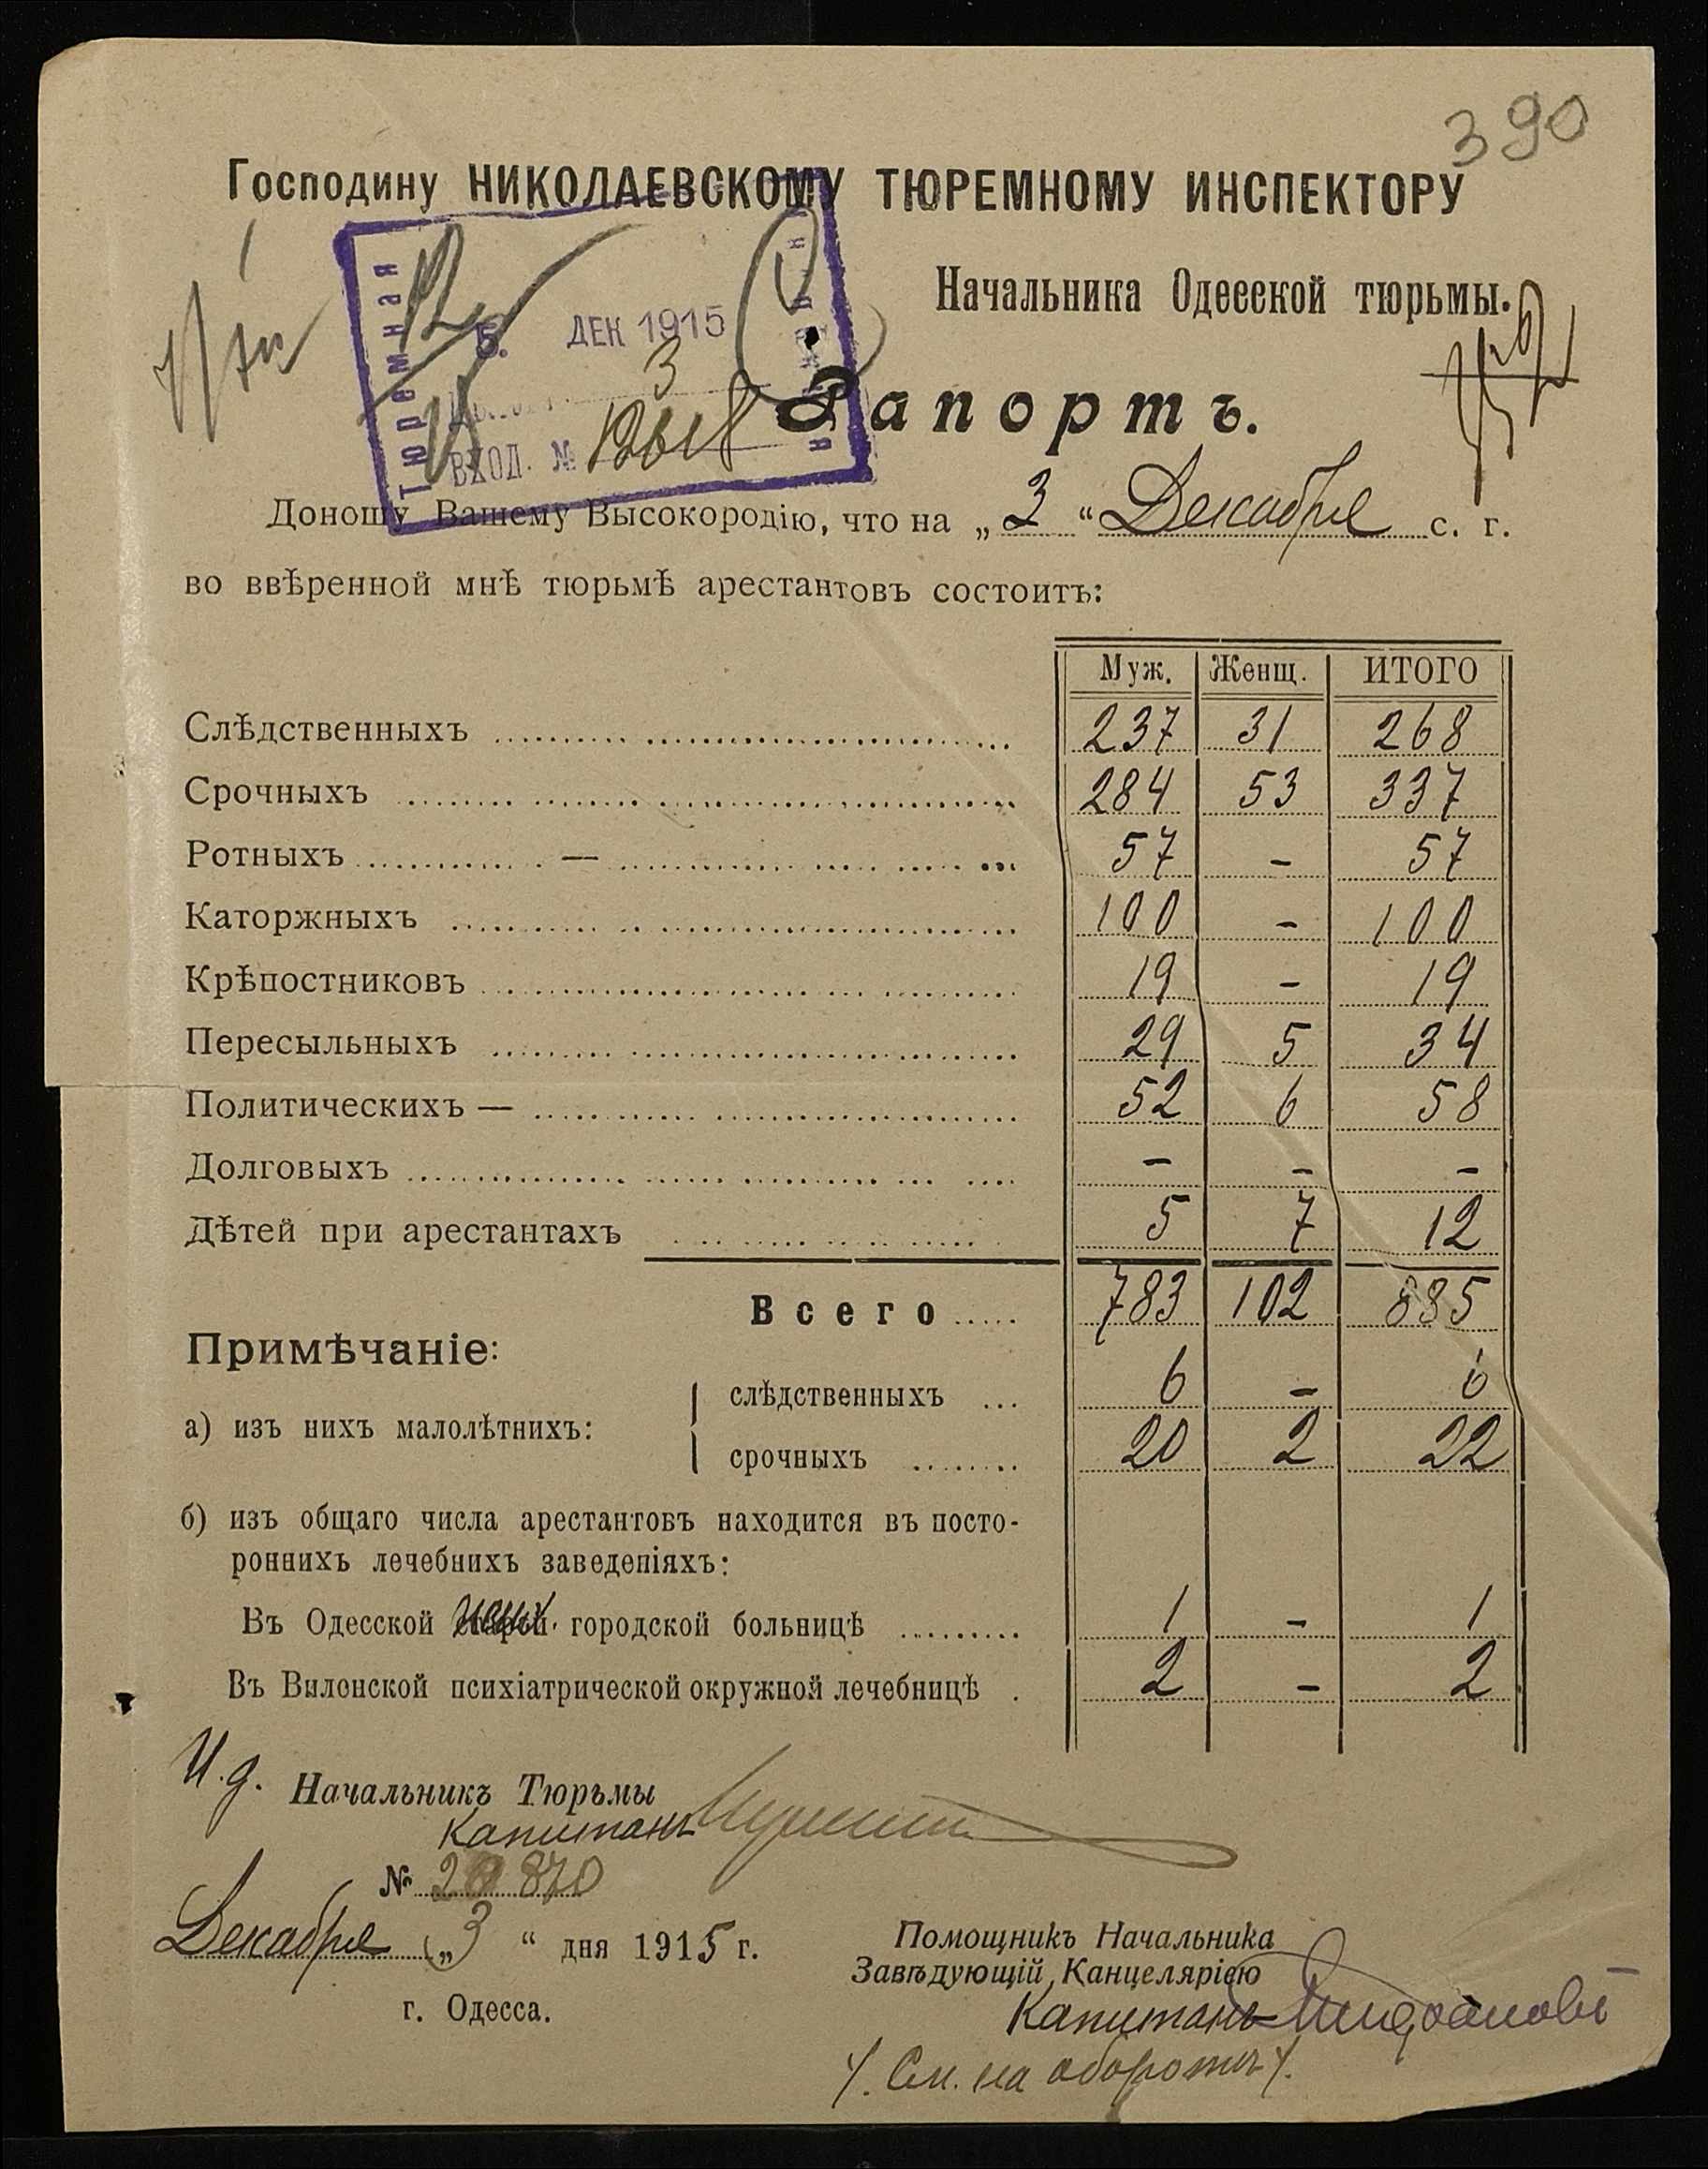 390
Господину НИКОЛАЕВСКОМУ ТЮРЕМНОМУ ИНСПЕКТОРУ
Начальника Одесской тюрьмы.
Тюремная
5. ДЕК 1915
3
ВХОД. №
Рапортъ.
Доношу Вашему Высокородію, что на „3“ Декабря с. г.
во ввѣренной мнѣ тюрьмѣ арестантовъ состоитъ:
Муж. Женщ. ИТОГО
Слѣдственныхъ 237 31 268
Срочныхъ 284 53 337
Ротныхъ — 57 - 57
Каторжныхъ 100 - 100
Крѣпостниковъ 19 - 19
Пересыльныхъ 29 5 34
Политическихъ — 52 6 58
Долговыхъ - - -
Дѣтей при арестантахъ 5 7 12
Всего 783 102 885
Примѣчаніе:
а) изъ нихъ малолѣтнихъ: слѣдственныхъ 6 - 6
срочныхъ 20 2 22
б) изъ общаго числа арестантовъ находится въ посто-
роннихъ лечебнихъ заведеніяхъ:
Въ Одесской городской больницѣ 1 - 1
Въ Вилонской психіатрической окружной лечебницѣ 2 - 2
И.д. Начальникъ Тюрьмы
Капитанъ
№ 20870
Декабря „3“ дня 1915 г.
г. Одесса.
Помощникъ Начальника
Завѣдующій Канцеляріею
Капитанъ
/. См. на оборотѣ /.